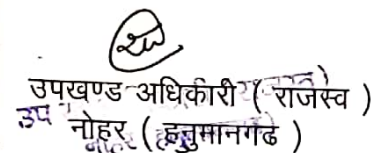 उपखण्ड अधिकारी ( राजस्व )
उप नोहर ( हनुमानगढ )